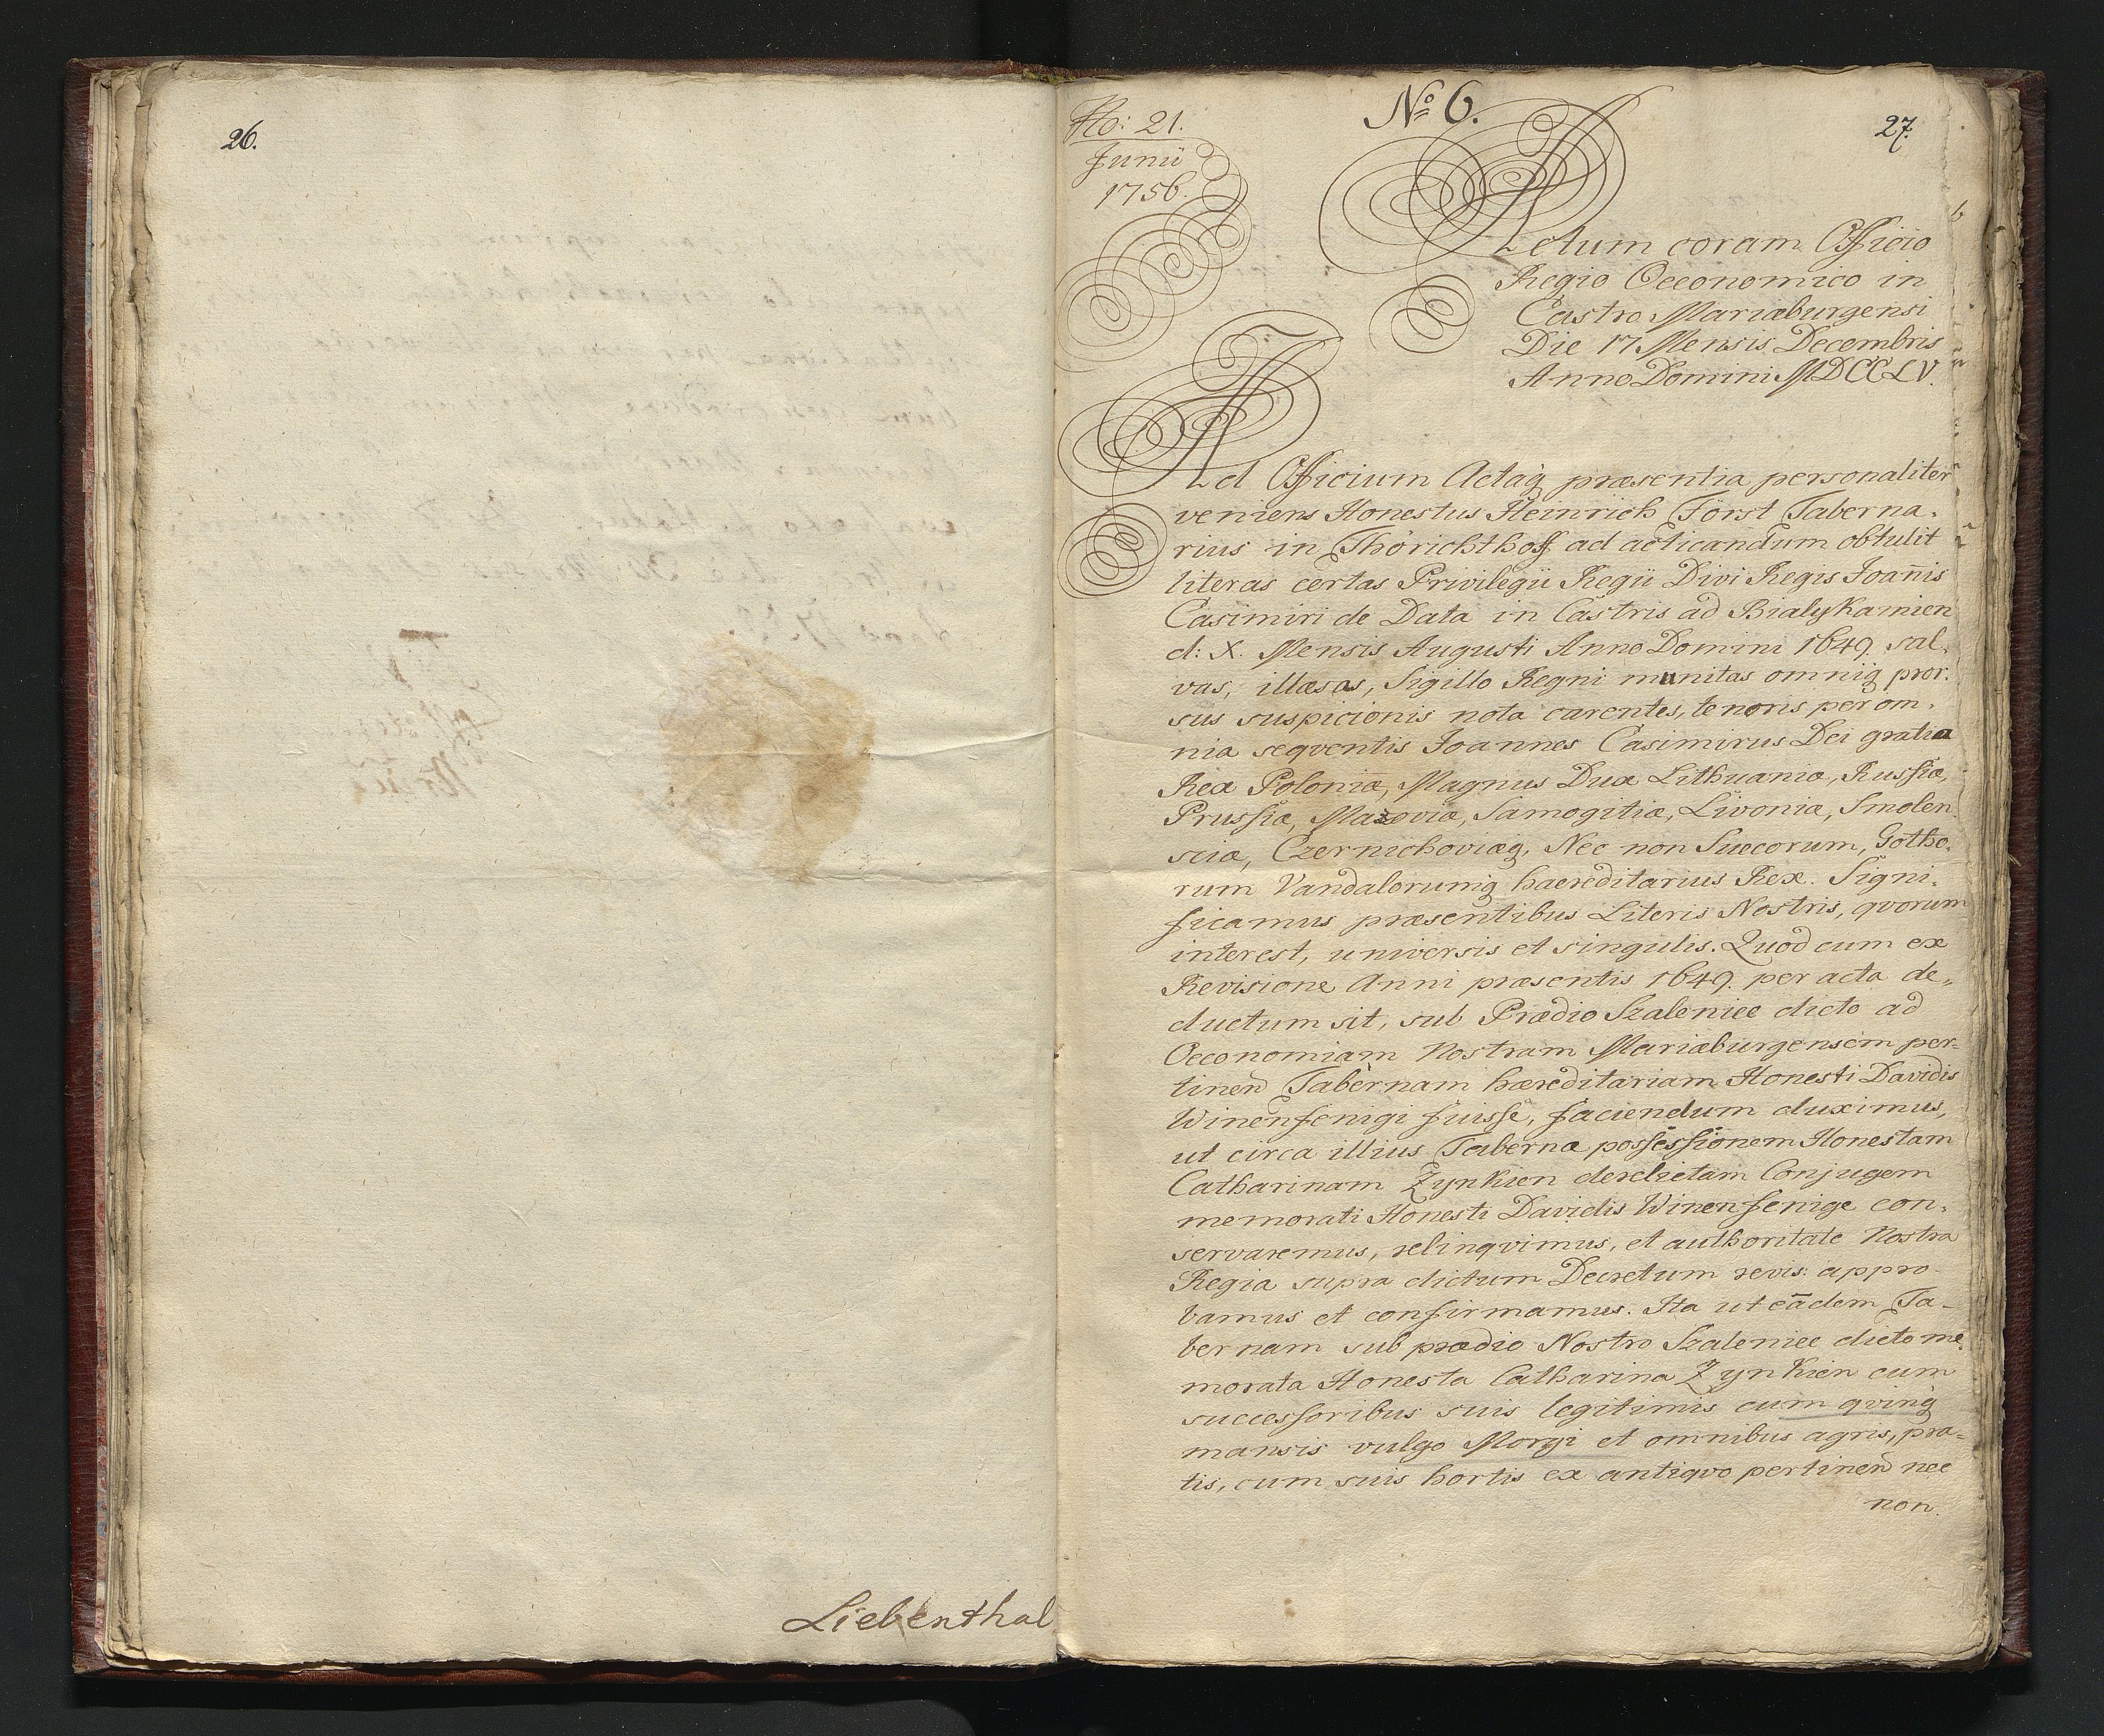 26.
Liebenthal
No 6.
27.
No: 21.
Junii
1756.
Actum coram Officio
Regio Oeconomico in
Castro Mariæburgensi
Die 17 Mensis Decembris
Anno Domini MDCCLV.
Ad Officium Actaq́ præsentia personaliter
veniens Honestus Heinrich Först Taberna,
rius in Thörichthoff ad acticandum obtulit
literas certas Privilegii Regii Divi Regis Joan̄is
Casimiri de Data in Castris ad BialyKamien
d: X. Mensis Augusti Anno Domini 1649. sal,
vas, illæsas, Sigillo Regni munitas omniq́ pror,
sus suspicionis nota carentes, tenoris per om,
nia seqventis Joannes Casimirus Dei gratia
Rex Poloniæ, Magnus Dux Lithuaniæ, Russiæ,
Prussiæ, Mazoviæ, Samogitiæ, Livoniæ, Smolen
sciæ, Czernichoviæq́, Nec non Suecorum, Gotho,
rum Vandalorumq́ haereditarius Rex. Signi,
ficamus præsentibus Literis Nostris, qvorum
interest, universis et singulis. Quod cum ex
Revisione Anni præsentis 1649. per acta de,,
ductum sit, sub Prædio Szaleniec dicto ad
Oeconomiam Nostram Mariæburgensem per=
tinen Tabernam hæreditariam Honesti Davidis
Winenfenigi fuisse, faciendum duximus,
ut circa illius Tabernæ possessionem Honestam
Catharinam Zynkien derelictam Conjugem
memorati Honesti Davidis Winenfenige con,
servaremus, relinqvimus, et authoritate Nostra
Regia supra dictum Decretum revis: appro-
bamus et confirmamus. Ita ut eādem Ta-
bernam sub prædio Nostro Szaleniec dicto me,
morata Honesta Catharina Zynkien cum
successoribus suis legitimis cum qvinq́
mansis vulgo Morgi et omnibus agris, pra=
tis, cum suis hortis ex antiqvo pertinen nec
non.